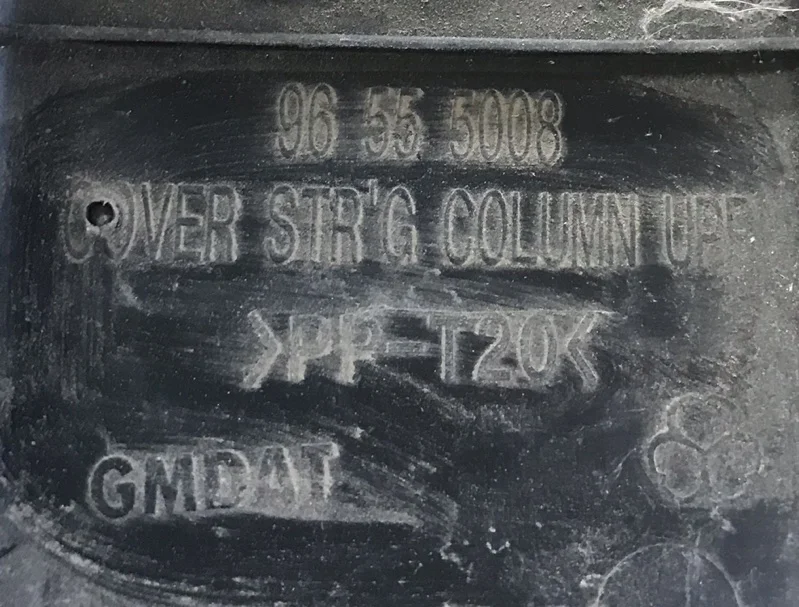 96 55 5008
COVER STR'G COLUMN UPR
>PP-T20<
GMDAT